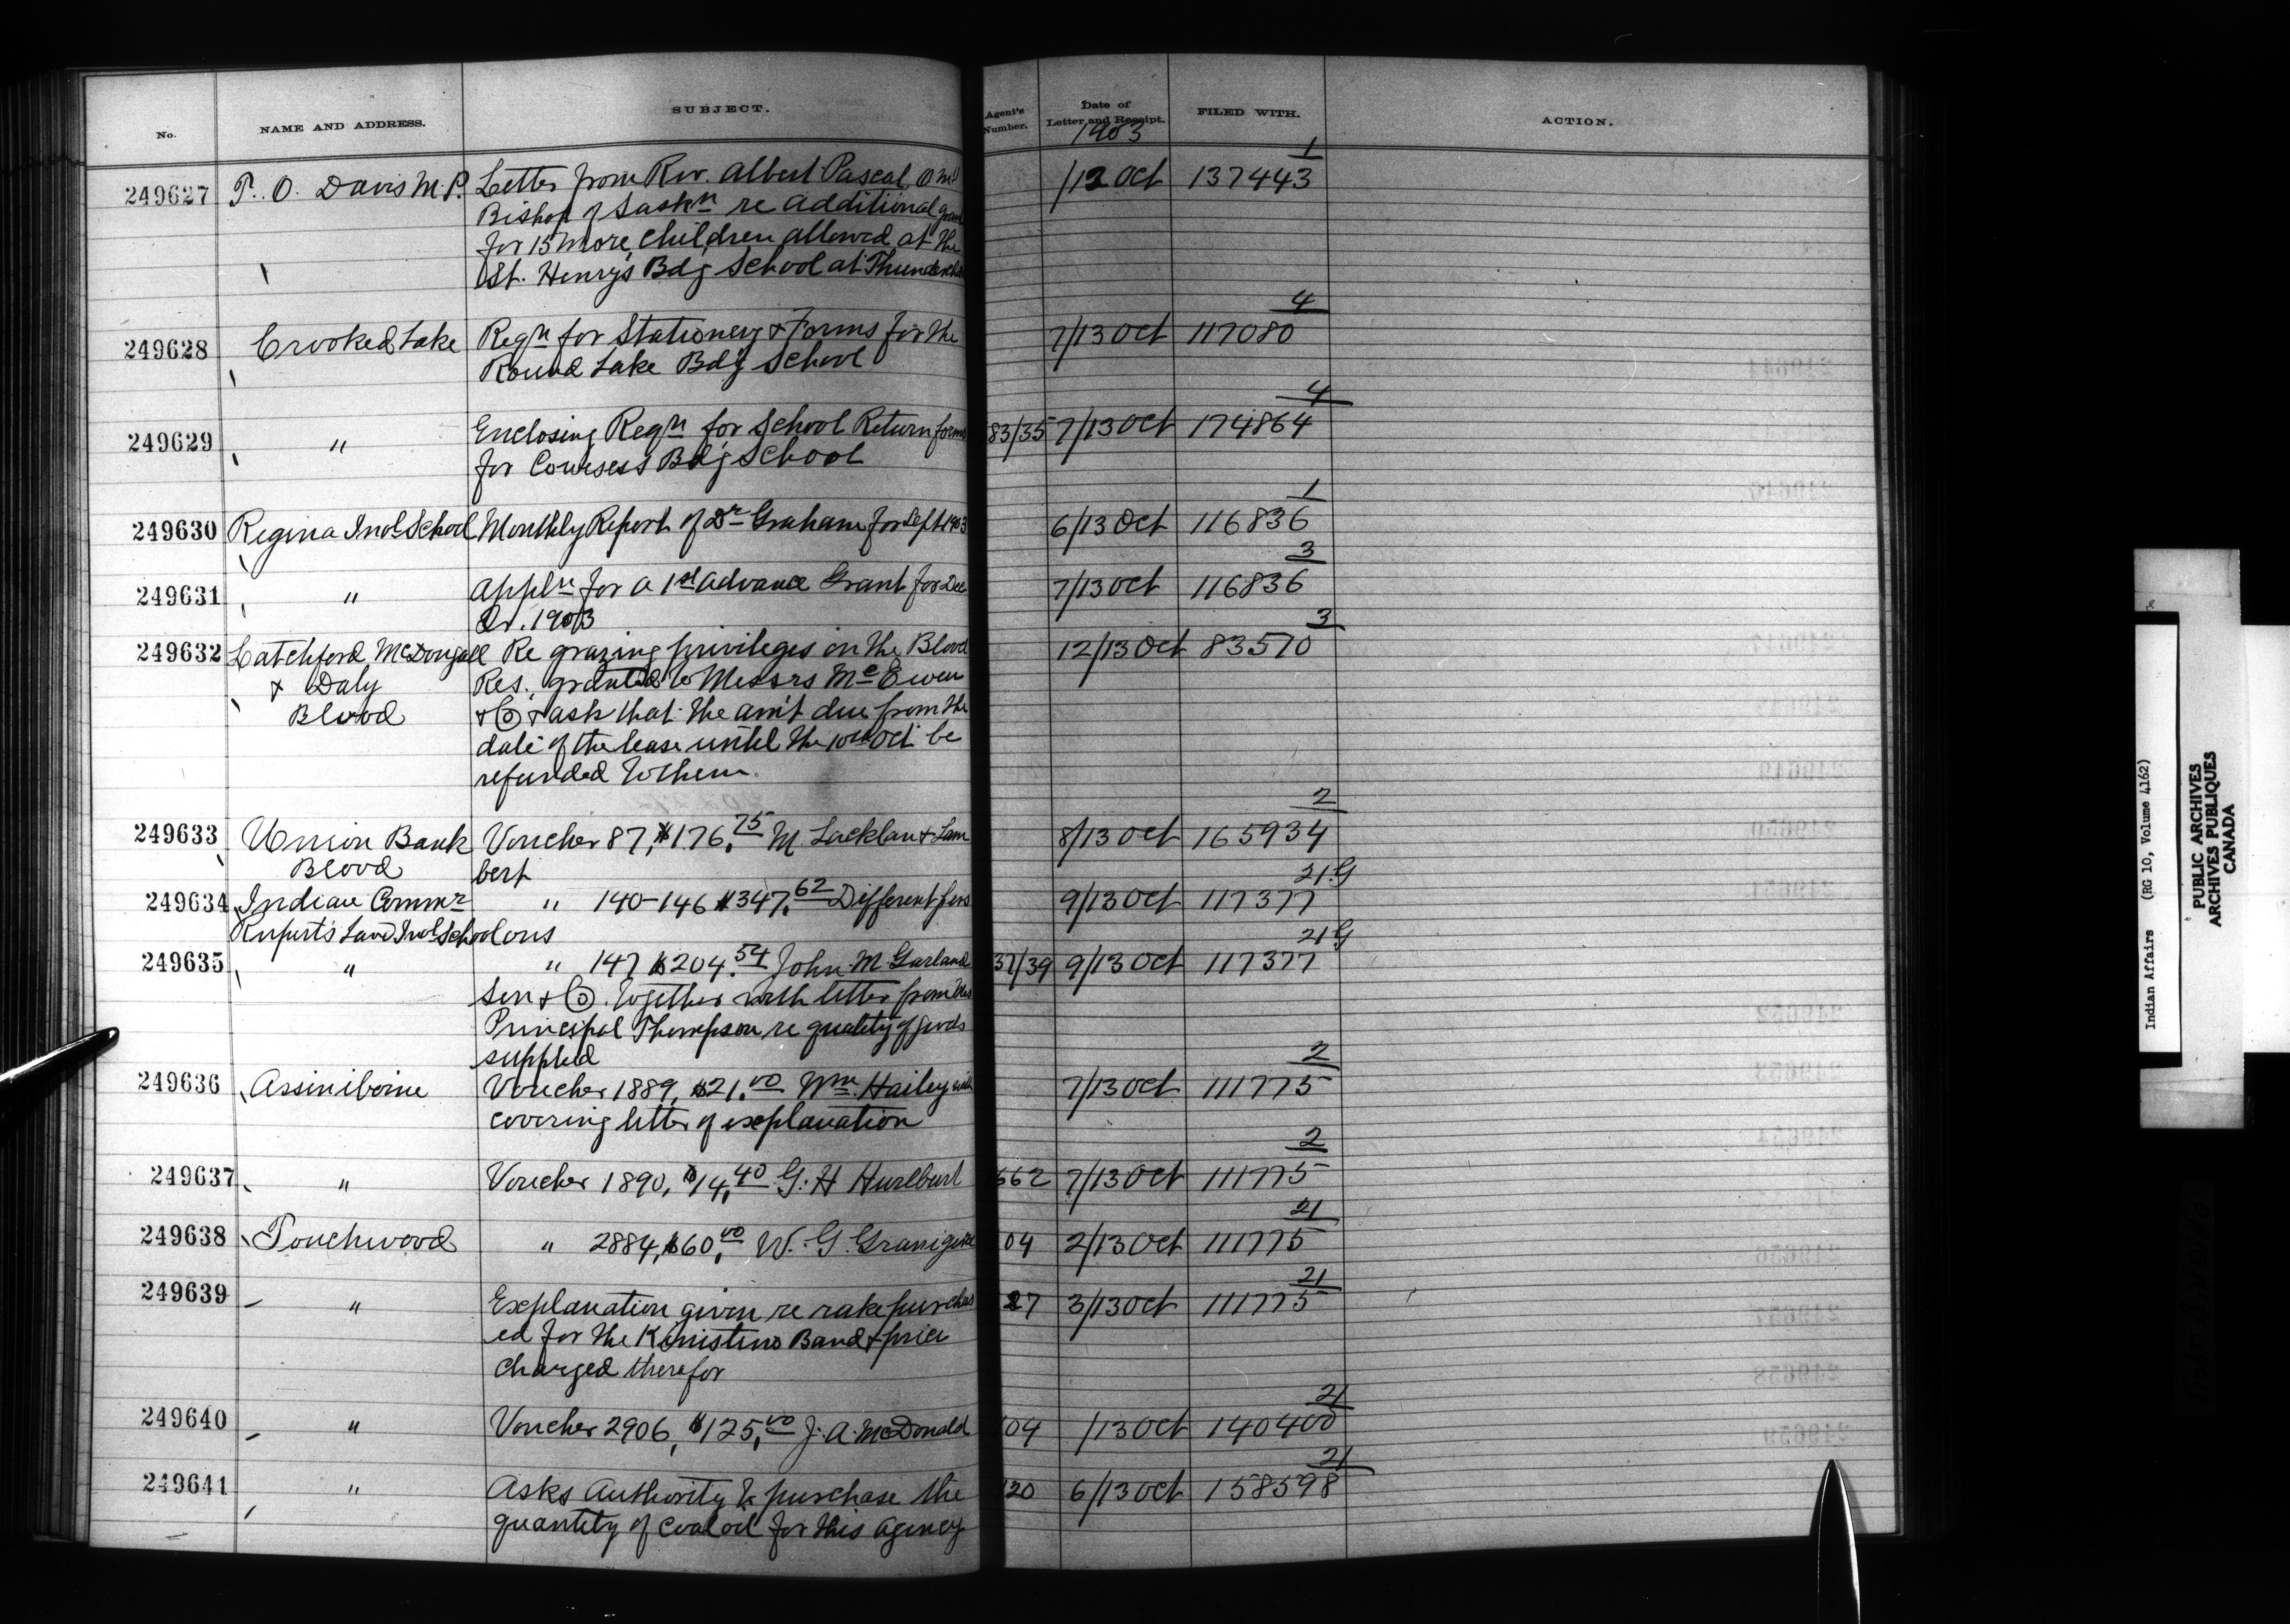 No.
NAME AND ADDRESS.
SUBJECT.
Agent's Number.
Date of Letter and Receipt.
FILED WITH.
ACTION.
1903
249627 T. O. Davis M.P. Letter from Rev. Albert Pascal O.M.I /12 Oct 137443 1
Bishop of Saskn re additional gran
for 15 more children allowed at the
St. Henry's Bdg School at Thunderchi
249628 Crooked Lake Reqn for Stationery & Forms for the 7/13 Oct 117080 4
Round Lake Bdg School
249629 " Enclosing Reqn for School Return forms 83/35 7/13 Oct 174864 4
for Cowesess Bdg School
249630 Regina Indl School Monthly Report of Dr Graham for Sept 1903 6/13 Oct 116836 1
249631 " Appln for a 1st advance Grant for Dec 7/13 Oct 116836 3
Qr. 1903
249632 Latchford, McDougall Re grazing privileges on the Blood 12/13 Oct 83570 3
& Daly Res. granted to Messrs McEwen
Blood & Co & ask that the am't due from the
date of the lease until the 10th Oct be
refunded to them.
249633 Union Bank Voucher 87, $176.75 McLachlan & Lam 8/13 Oct 165934 2
Blood bert
249634 Indian Commr " 140-146 $347.62 Different pers 9/13 Oct 117377 21G
Rupert's Land Indl School ons
249635 " " 147, $204.54 John M Garland 37/39 9/13 Oct 117377 21G
Son & Co. together with letter from
Principal Thompson re quality of goods
supplied
249636 Assiniboine Voucher 1889, $21.00 Wm. Hailey with 7/13 Oct 111775 2
covering letter of explanation
249637 " Voucher 1890, $14.40 G. H Hurlburt 662 7/13 Oct 111775 2
249638 Touchwood " 2884, $60.00 W. G. 04 2/13 Oct 111775 21
249639 " Explanation given re rake purchas 27 3/13 Oct 111775 21
ed for the Kinistino Band & price
charged therefor
249640 " Voucher 2906, $125.00 J. A. McDonald 04 /13 Oct 140400 21
249641 " Asks Authority to purchase the 120 6/13 Oct 158598 21
quantity of coal oil for this agency
Indian Affairs (RG 10, Volume 4162)
PUBLIC ARCHIVES
ARCHIVES PUBLIQUES
CANADA